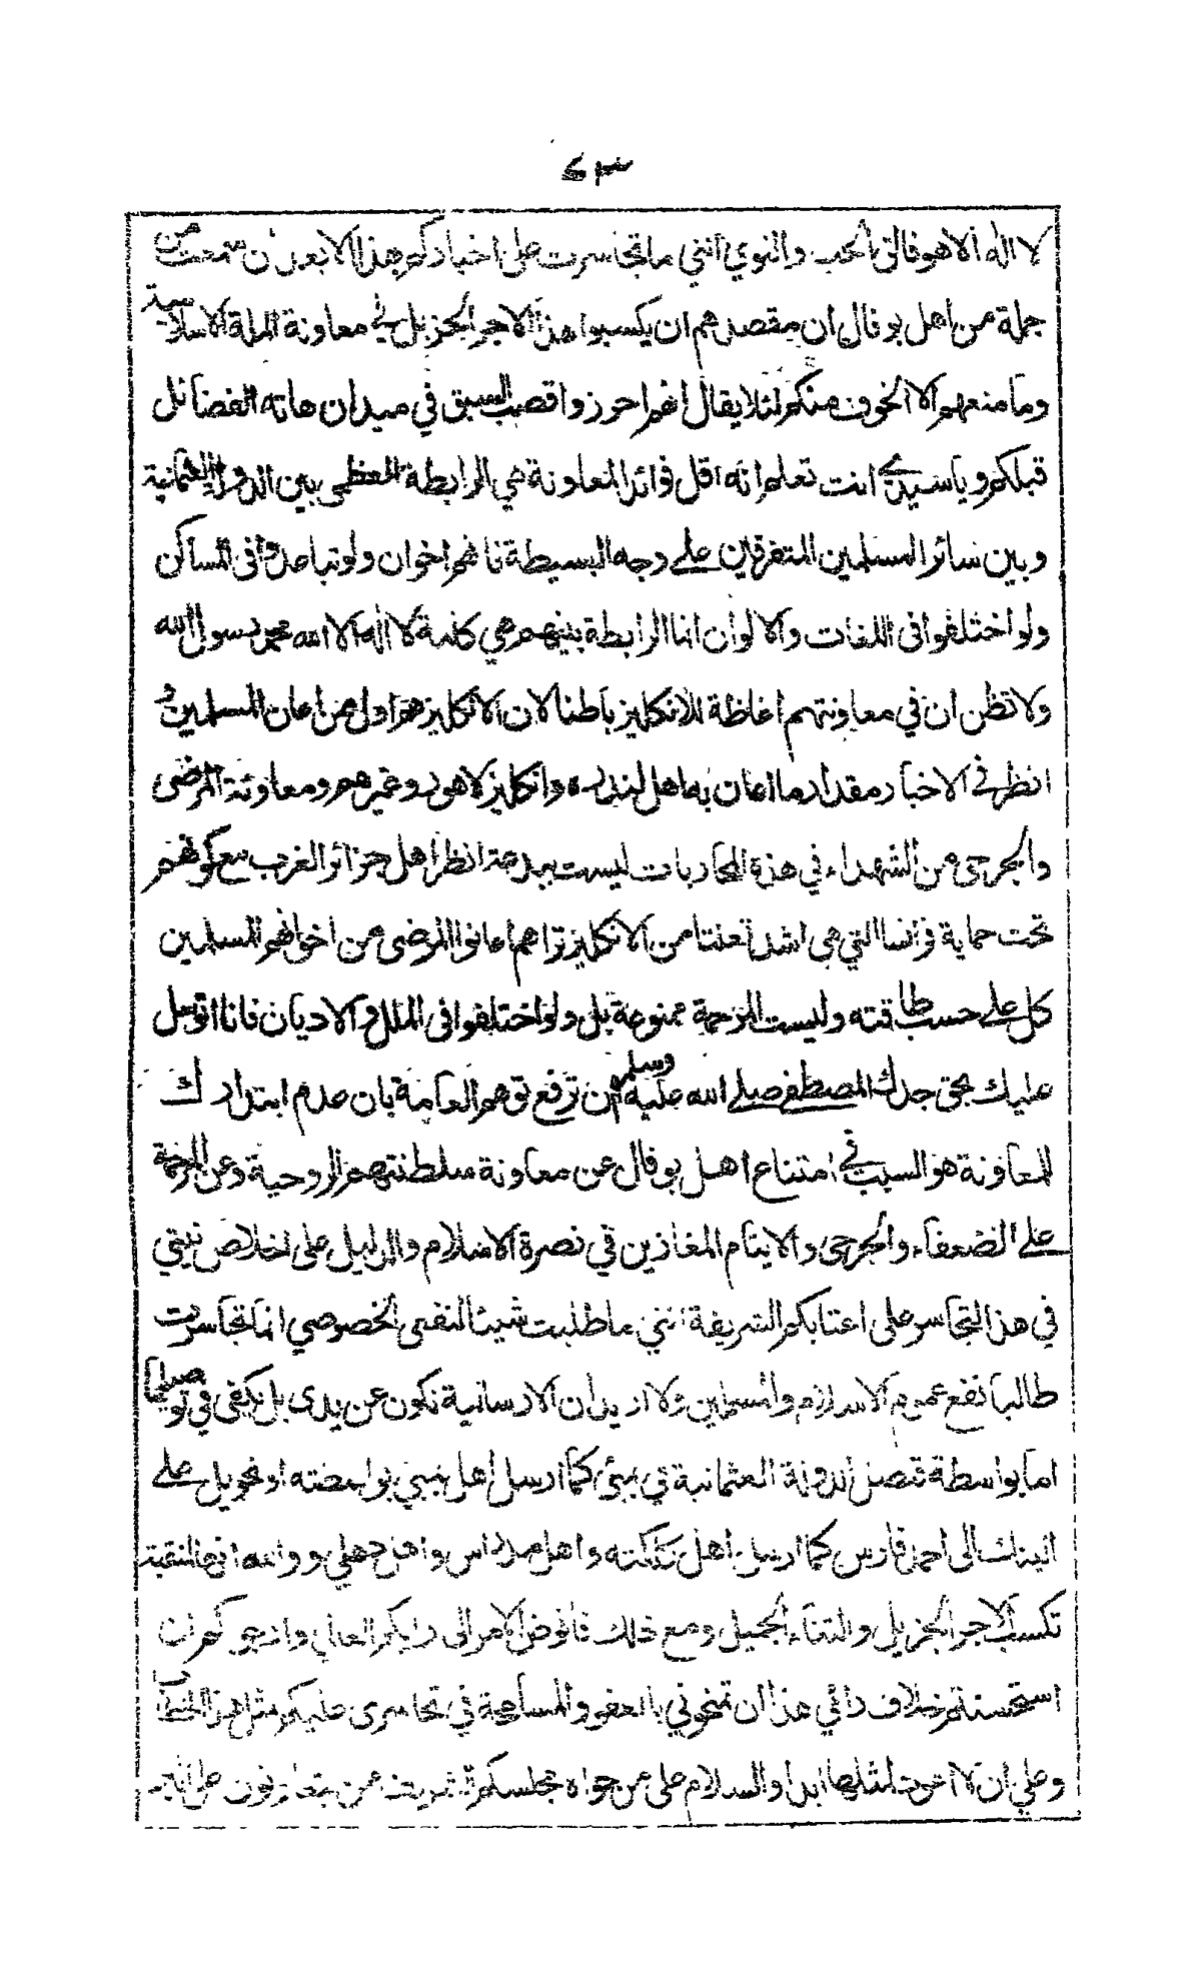 ٤٣
لا اله الا هو فالق الحب والنوي انني ما تجاسرت على اخباركم هذا الا بعد ان سمعت من
جملة من اهل بوفال ان مقصدهم ان يكسبوا هذا الاجر الجزيل في معاونة الملة الاسلامية
وما منعهم الا الخوف منكم لئلا يقال انهم احرزوا قصب السبق في ميدان هاته الفضائل
قبلكم ويا سيدي انت تعلم انه اقل فوائد المعاونة هي الرابطة العظمى بين الدولة العثمانية
وبين سائر المسلمين المتفرقين على وجه البسيطة فانهم اخوان ولو تباعدوا في المساكن
ولو اختلفوا في اللغات والالوان انما الرابطة بينهم هي كلمة لا اله الا الله محمد رسول الله
ولا تظن ان في معاونتهم اغاظة للانكليز باطنا لان الانكليز هم اول من اعان المسلمين و
انظر في الاخبار مقدار ما اعان به اهل لندره وانكليز لاهور وغيرهم ومعاونة المرضى
والجرحى من الشهداء في هذة المحاربات ليست ببدعة انظر اهل جزائر الغرب مع كونهم
تحت حماية فرانسا التي هي اشد تعنتا من الانكليز تراهم اعانوا المرضى من اخوانهم المسلمين
كل على حسب طاقته وليست الرحمة ممنوعة بل ولو اختلفوا في الملل والاديان فانا اتوسل
عليك بحق جدك المصطفى صلى الله عليه وسلم ان ترفع توهم العامة بان عدم ابتدارك
للمعاونة هو السبب في امتناع اهل بوفال عن معاونة سلطنتهم الروحية وعن الرحمة
على الضعفاء والجرحى والايتام المغازين في نصرة الاسلام والدليل على اخلاص نيتي
في هذا التجاسر على اعتابكم الشريفة انني ما طلبت شيئا لنفسي الخصوصي انما تجاسرت
طالبا نفع عموم الاسلام والمسلمين ولا اريد ان الارسالية تكون عن يدى بل يكفى في توصيلها
اما بواسطة قنصل الدولة العثمانية في بمبئ كما ارسل اهل بمبي بواسطته او تحويل على
البنك الى احمد فارس كما ارسل اهل كلكته واهل مدراس واهل دهلي والله انها لمنقبة
تكسب الاجر الجزيل والثناء الجميل ومع ذلك فافوض الامر الى رايكم العالي وارجوكم ان
استحسنتم خلاف رائي هذا ان تمنحوني بالعفو والمسامحة في تجاسرى عليكم مثل هذا الخطا
وعلي ان لا اعود لمثلها ابدا والسلام على من حواه مجلسكم الشريف ممن يتعاونون على البر